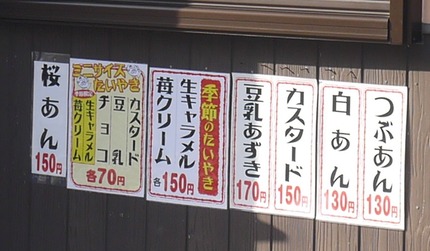 つぶあん
130円
白あん
130円
カスタード
150円
豆乳あずき
170円
季節のたいやき
生キャラメル
苺クリーム
各150円
ミニサイズ
たいやき
カスタード
豆乳
チョコ
生キャラメル
苺クリーム
各70円
桜あん
150円